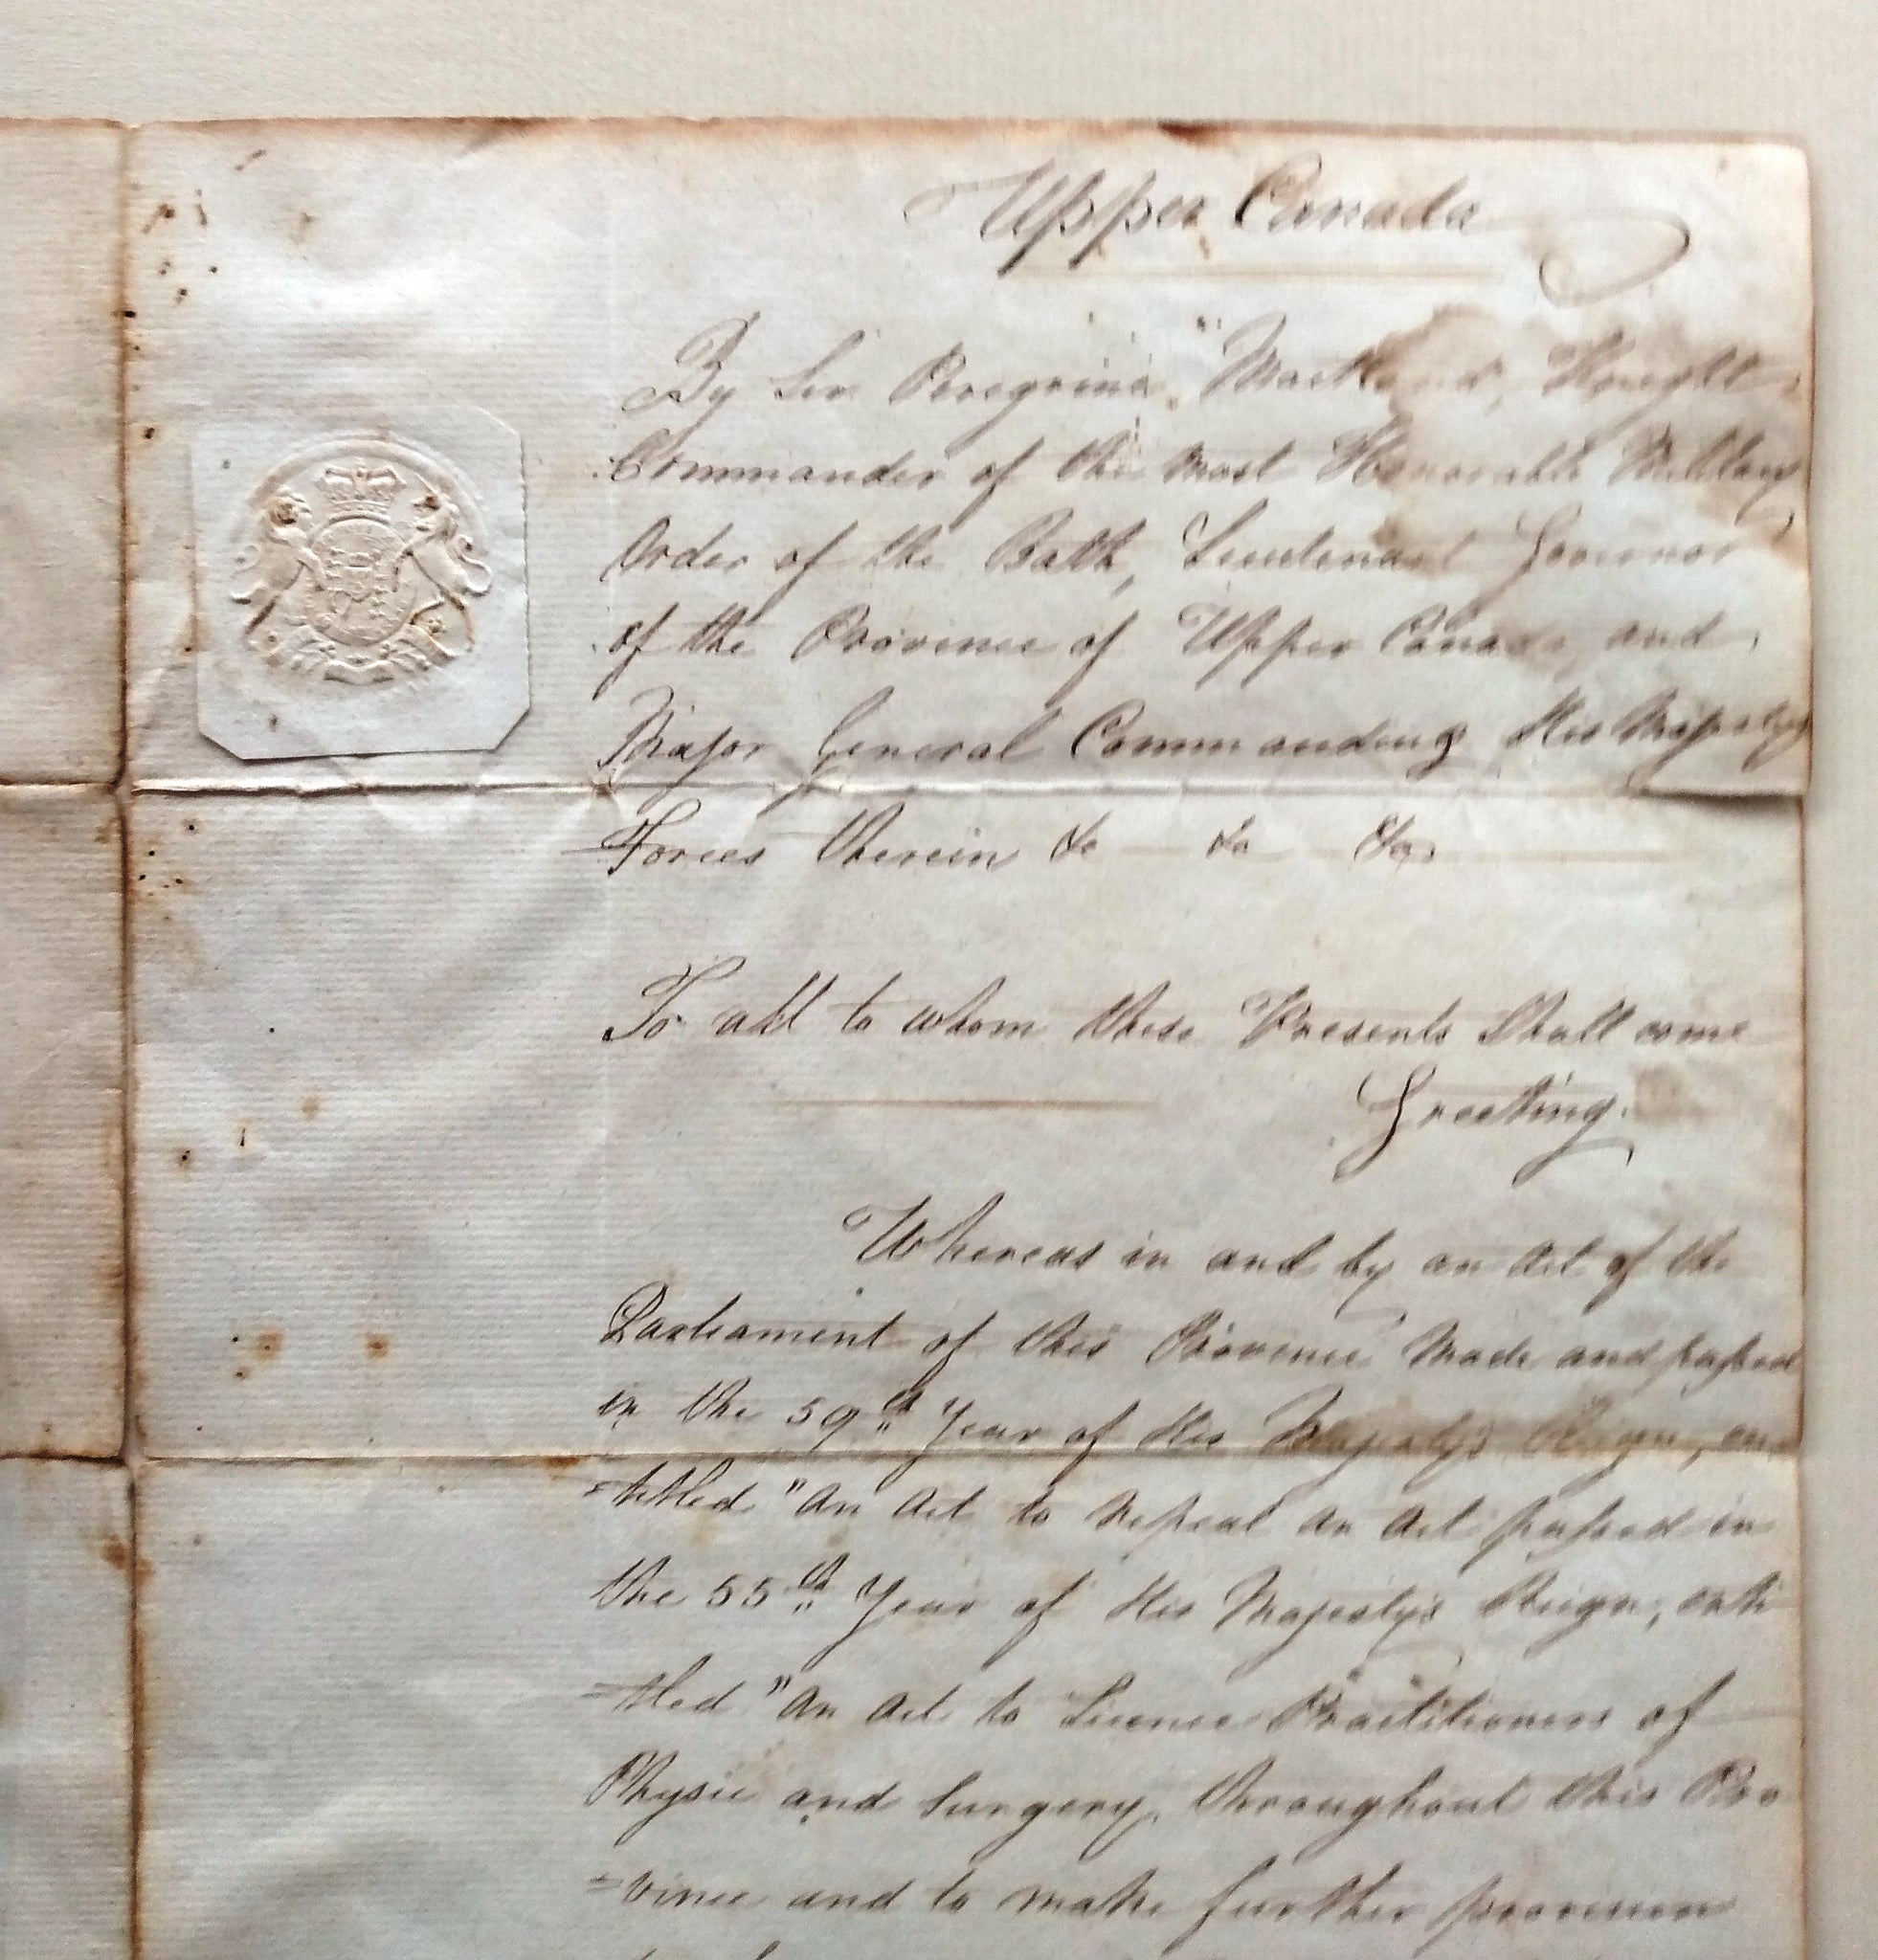 Upper Canada
By Sir Peregrine Maitland, Knight
Commander of the Most Honorable Military
Order of the Bath, Lieutenant Governor
of the Province of Upper Canada, and
Major General Commanding His Majestys
Forces therein &c &c &c
To all to whom these Presents Shall come
Greeting.
Whereas in and by an Act of the
Parliament of this Province Made and passed
in the 59th Year of His Majesty's Reign, en
=titled "An Act to repeal an Act passed in
the 55th Year of His Majesty's Reign, enti
=tled "An Act to Licence Practitioners of
Physic and Surgery, throughout this Pro
=vince and to make further provision